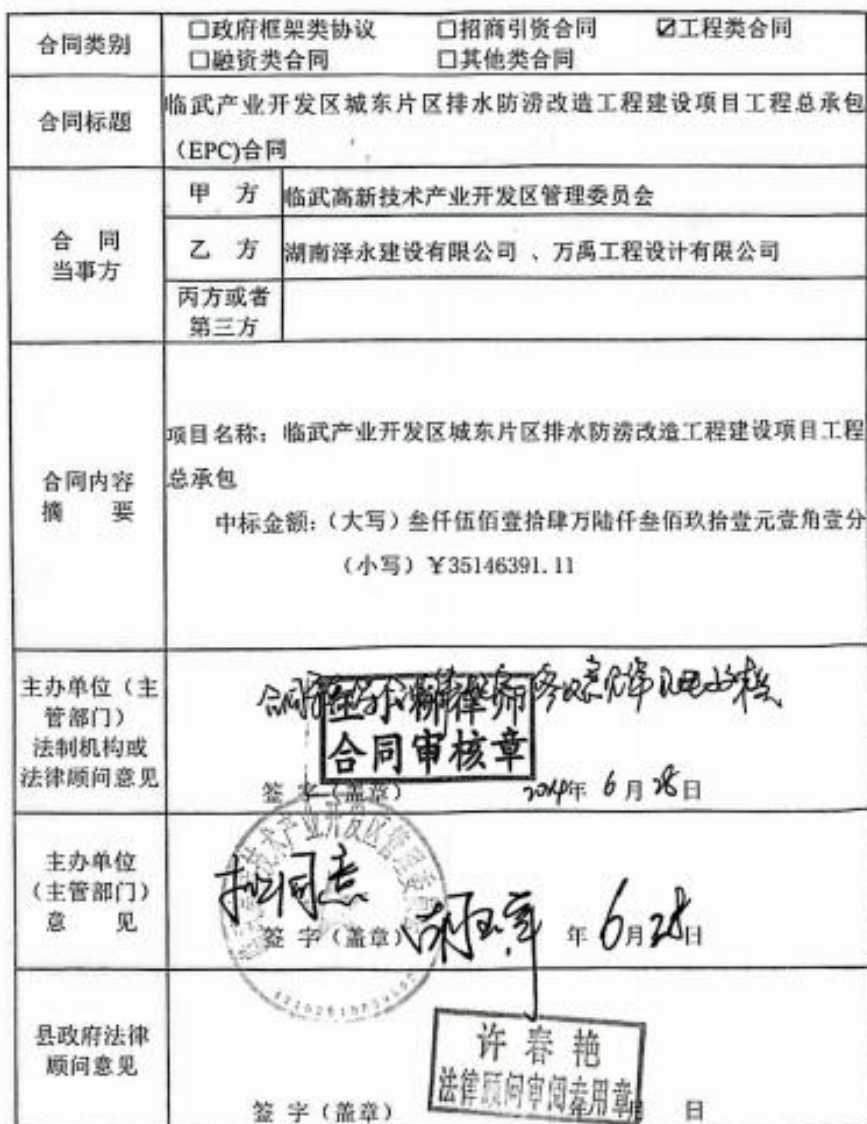 合同类别
☐政府框架类协议 ☐招商引资合同 ☑工程类合同
☐融资类合同 ☐其他类合同
合同标题
临武产业开发区城东片区排水防涝改造工程建设项目工程总承包
（EPC)合同
合 同
当事方
甲 方
临武高新技术产业开发区管理委员会
乙 方
湖南泽永建设有限公司 、万禹工程设计有限公司
丙方或者
第三方
合同内容
摘 要
项目名称：临武产业开发区城东片区排水防涝改造工程建设项目工程
总承包
中标金额：（大写）叁仟伍佰壹拾肆万陆仟叁佰玖拾壹元壹角壹分
（小写）￥35146391.11
主办单位（主
管部门）
法制机构或
法律顾问意见
律师
合同审核章
签 字（盖章） 2024年 6 月 28 日
主办单位
（主管部门）
意 见
拟同意
签 字（盖章） 年 6 月 28 日
技术产业开发区管理委员会
县政府法律
顾问意见
许春艳
法律顾问审阅专用章
签 字（盖章） 日